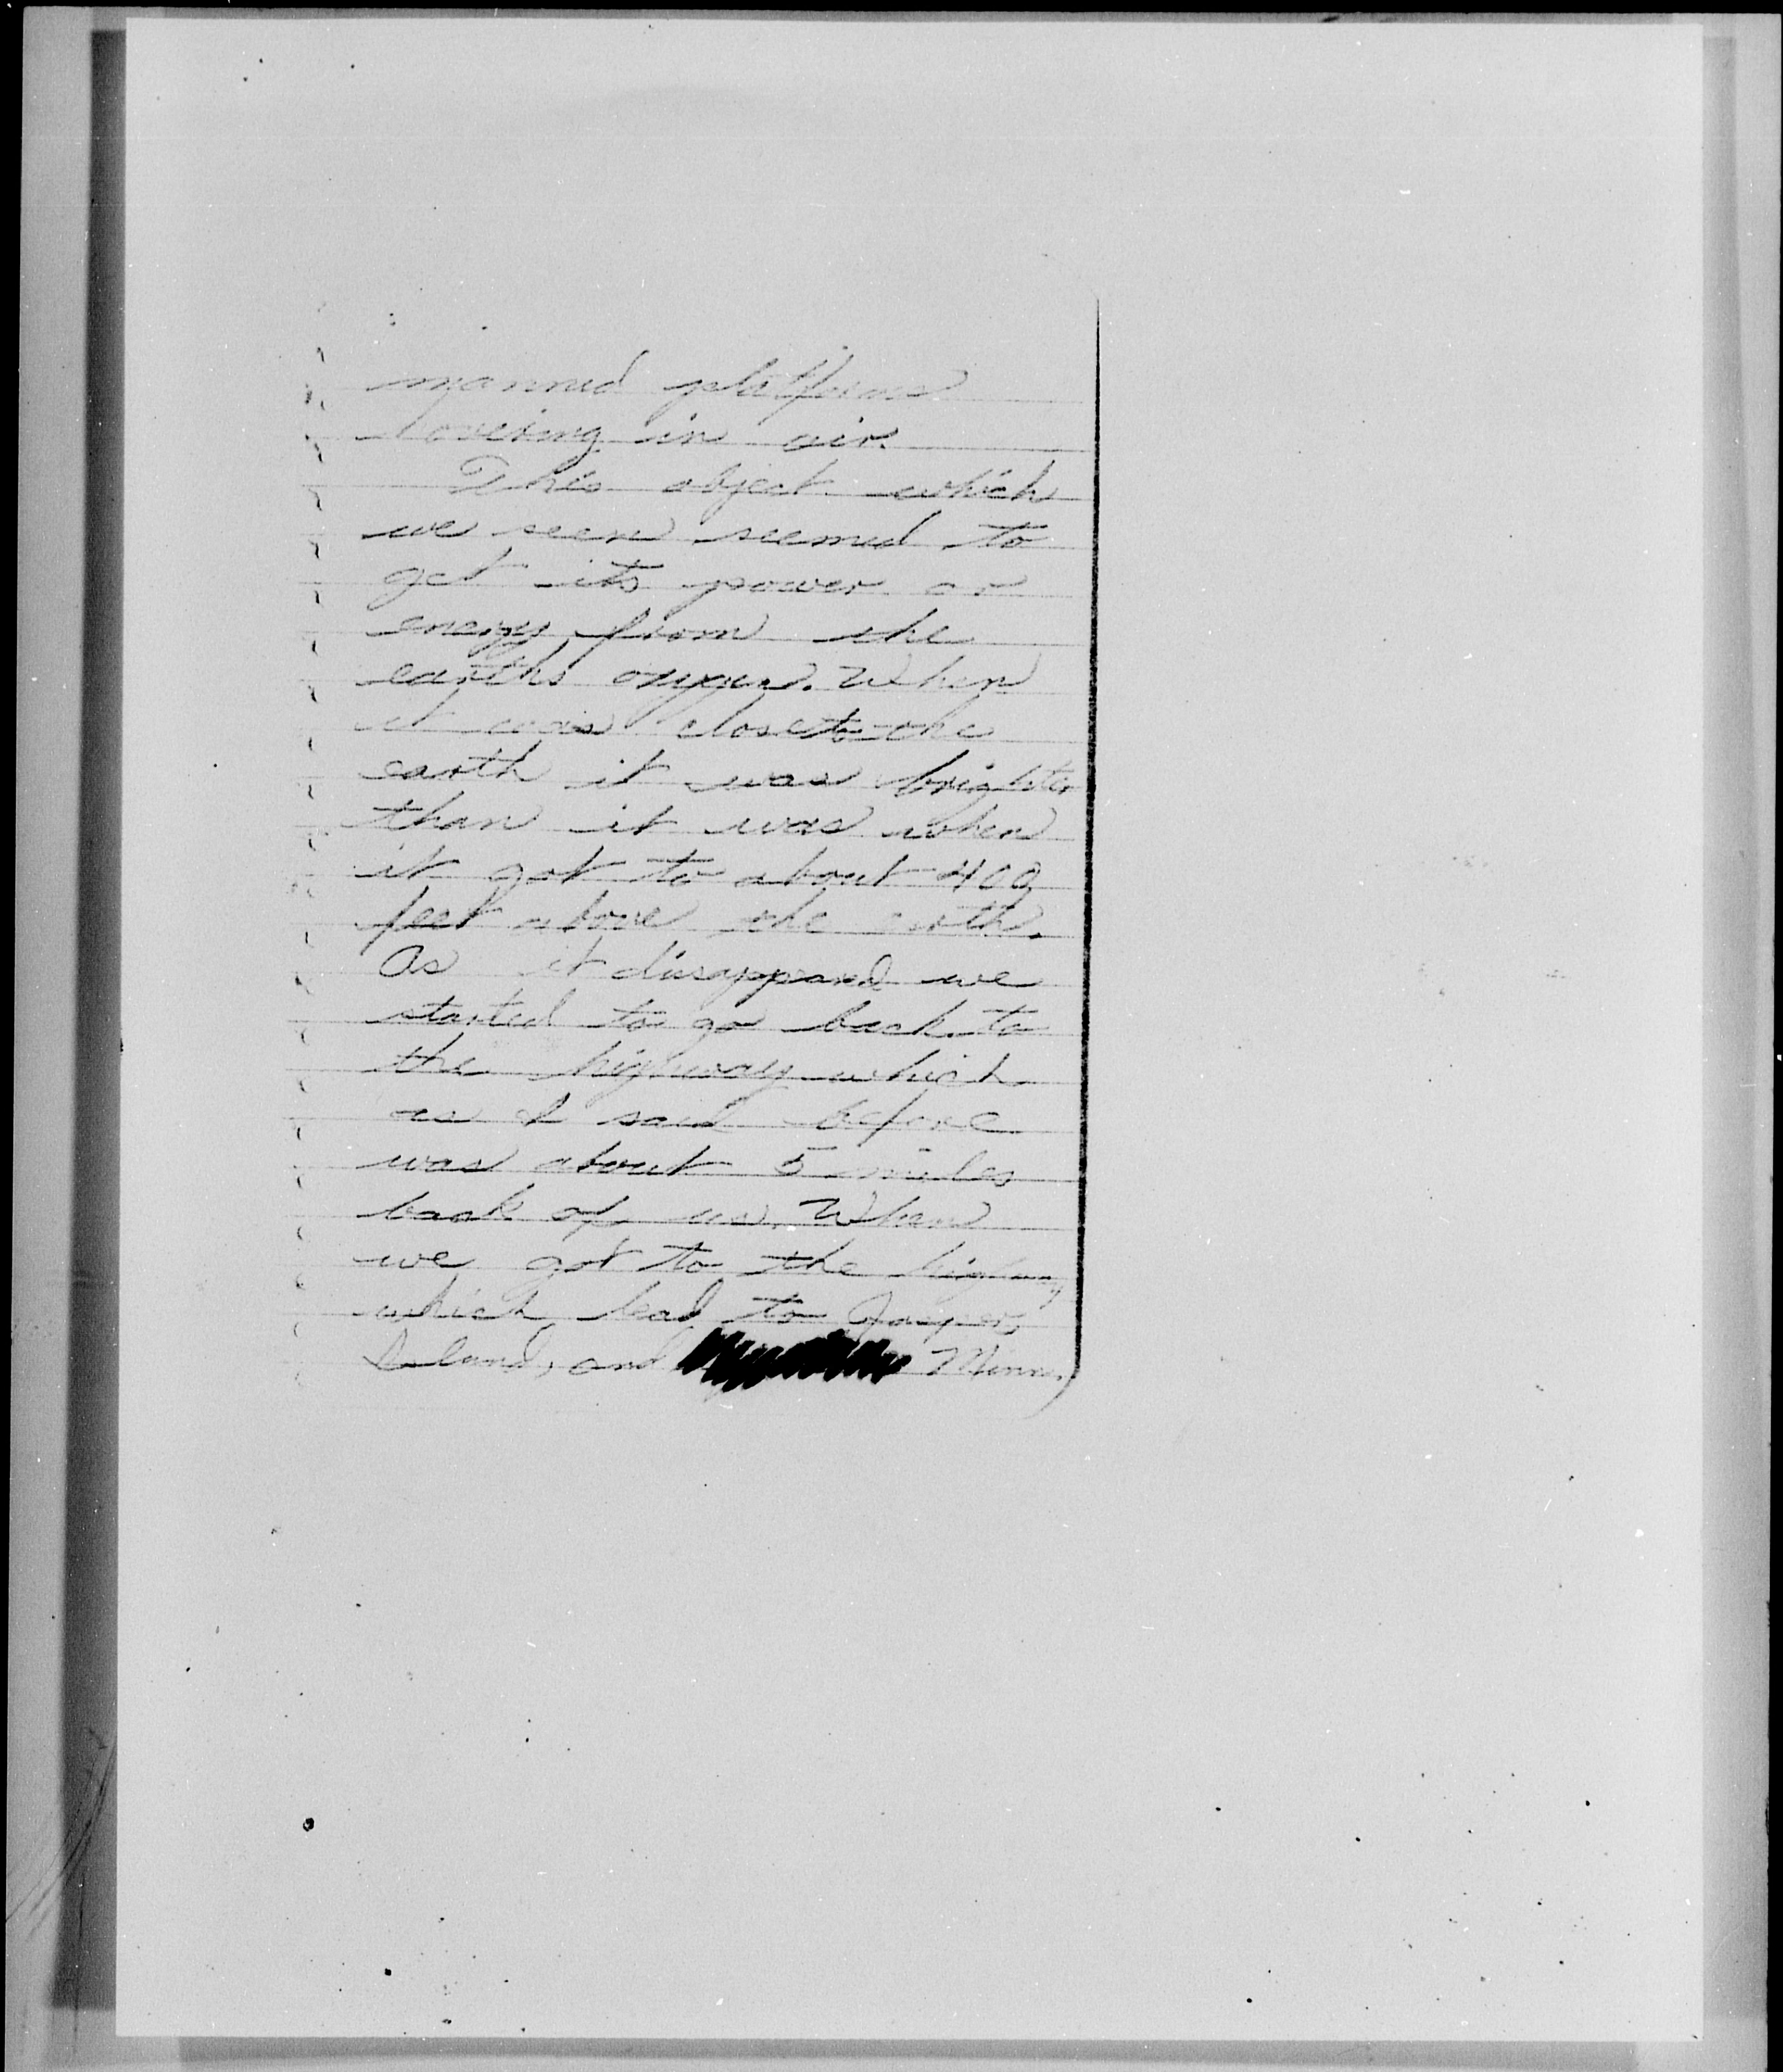 manned platforms
hovering in air.
This object which
we seen seemed to
get its power or
energy from the
earths oxygen. When
it was close to the
earth it was brighter
than it was when
it got to about 400
feet above the earth.
As it disappeared we
started to go back to
the highway which
as I said before
was about 5 miles
back of us. When
we got to the highway
which lead to
and Minn.